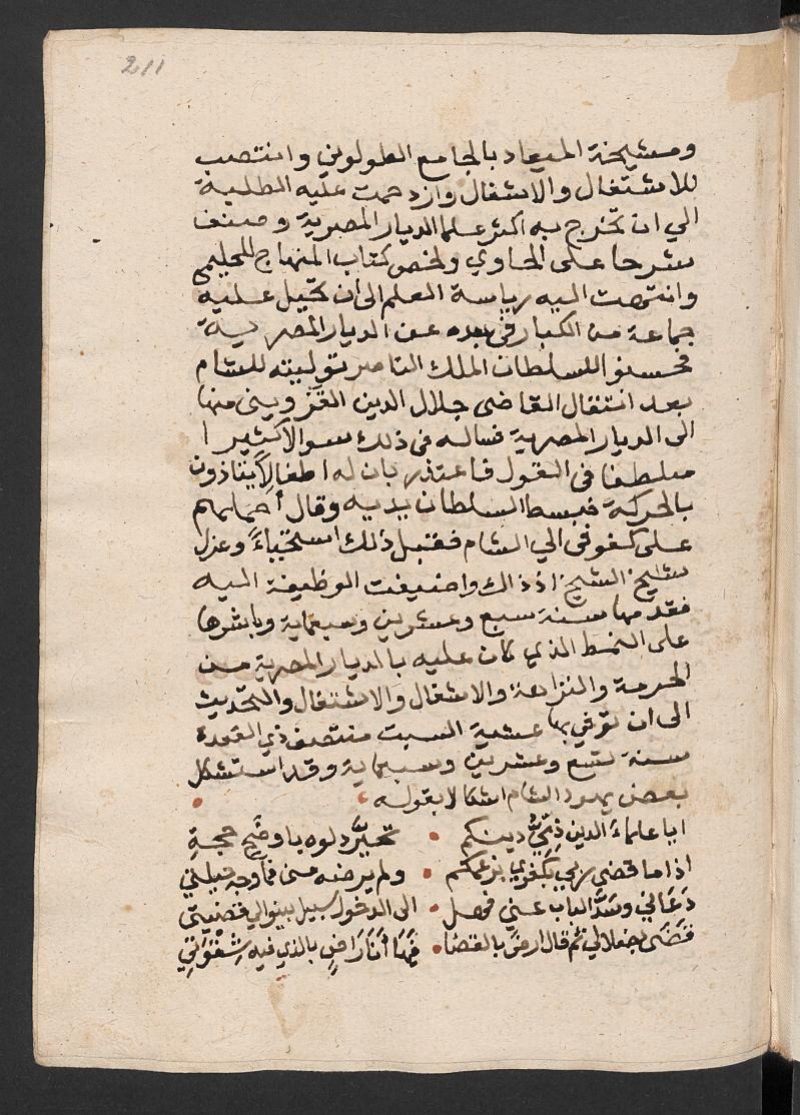 211
ومشيخة الميعاد بالجامع الطولوني وانتصب
للاشتغال والاشغال وازدحمت عليه الطلبة
الي ان تخرج به اكثر علما الديار المصرية وصنف
شرحا على الحاوي ولخص كتاب المنهاج للحليمي
وانتهت اليه رياسة العلم الى ان
جماعة من الكبار في بعده عن الديار المصرية
فحسنوا للسلطان الملك الناصر توليته للشام
بعد انتقال القاضى جلال الدين القزويني منها
الى الديار المصرية فساله في ذلك سوالا كثيرا
ملطفا في القول فاعتذر بان له اطفالا يتاذون
بالحركة فبسط السلطان يديه وقال أحملهم
على كفوفى الي الشام فقبل ذلك استحياءً وعزل
شيخ الشيخ اذ ذاك واضيفت الوظيفة اليه
فقدمها سنة سبع وعشرين وسبعماية وباشرها
على النمط الذي كان عليه بالديار المصرية من
الحرمة والنزاهة والاشغال والاشتغال والتحديث
الى ان توفي بها عشية السبت منتصف ذي القعدة
سنة تسع وعشرين وسبعماية وقد استشكل
بعض يهود الشام اشكالا بقوله
ايا علماءَ الدين ذِمّيُّ دينكم • تحيَّر دلوه باوضَحِ حجةِ
اذا ما قضى ربي بكفري بزعمكم • ولم يرضه منى فما وجه حيلتي
دَعَاني وسَدَّ الباب عني فهل • الى الدخول سبيل بينوا لي قضيتى
قَضَى بضلالي ثم قال ارض بالقضا • فهَا أنَا رَاضٍ بالذي فيه شِقْوَتي